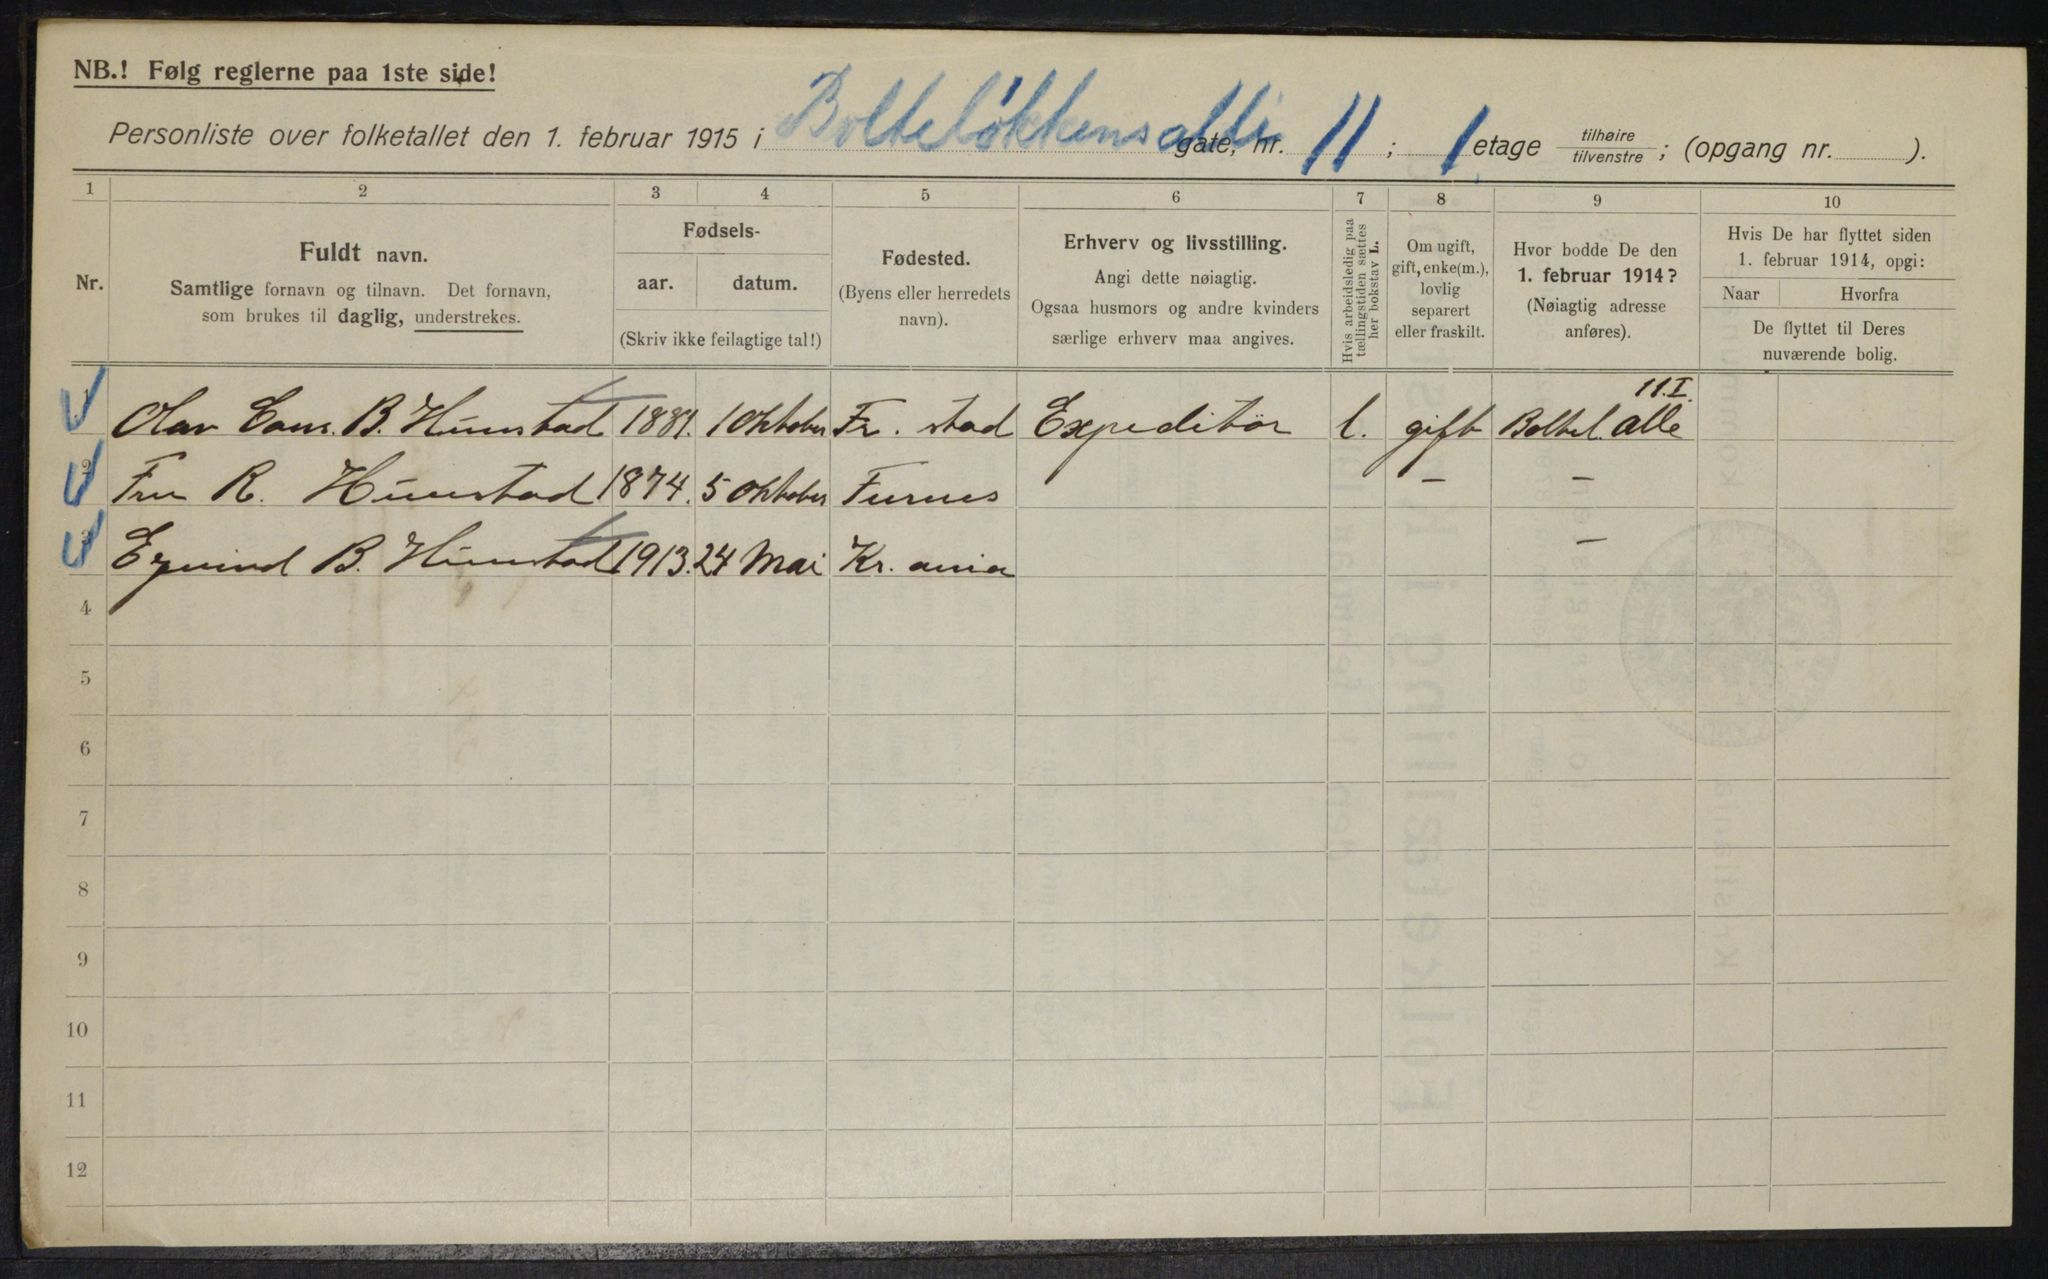 NB.! Følg reglerne paa 1ste side!
Personliste over folketallet den 1. februar 1915 i Bolteløkkens alle gate, nr. 11; 1 etage tilhøire tilvenstre; (opgang nr. ).
1 2 3 4 5 6 7 8 9 10
Nr.
Fuldt navn.
Samtlige fornavn og tilnavn. Det fornavn,
som brukes til daglig, understrekes.
Fødsels-
aar. datum.
(Skriv ikke feilagtige tal!)
Fødested.
(Byens eller herredets
navn).
Erhverv og livsstilling.
Angi dette nøiagtig.
Ogsaa husmors og andre kvinders
særlige erhverv maa angives.
Hvis arbeidsledig paa
tællingstiden sættes
her bokstav L.
Om ugift,
gift, enke(m.),
lovlig
separert
eller fraskilt.
Hvor bodde De den
1. februar 1914?
(Nøiagtig adresse
anføres).
Hvis De har flyttet siden
1. februar 1914, opgi:
Naar Hvorfra
De flyttet til Deres
nuværende bolig.
11.I.
Olav B. Hünstad 1881. 1 Oktober Fr. stad Expeditör l. gift Boltel. alle
2 Fru R. Hünstad 1874. 5 Oktober Furnes – –
3 Eyvind B. Hünstad 1913. 24 Mai Kr. ania –
4
5
6
7
8
9
10
11
12